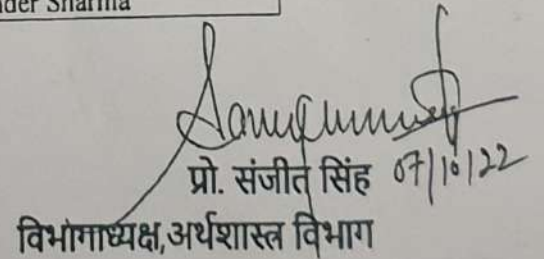 der Sharma
प्रो. संजीत सिंह 07/10/22
विभागाध्यक्ष,अर्थशास्त्र विभाग